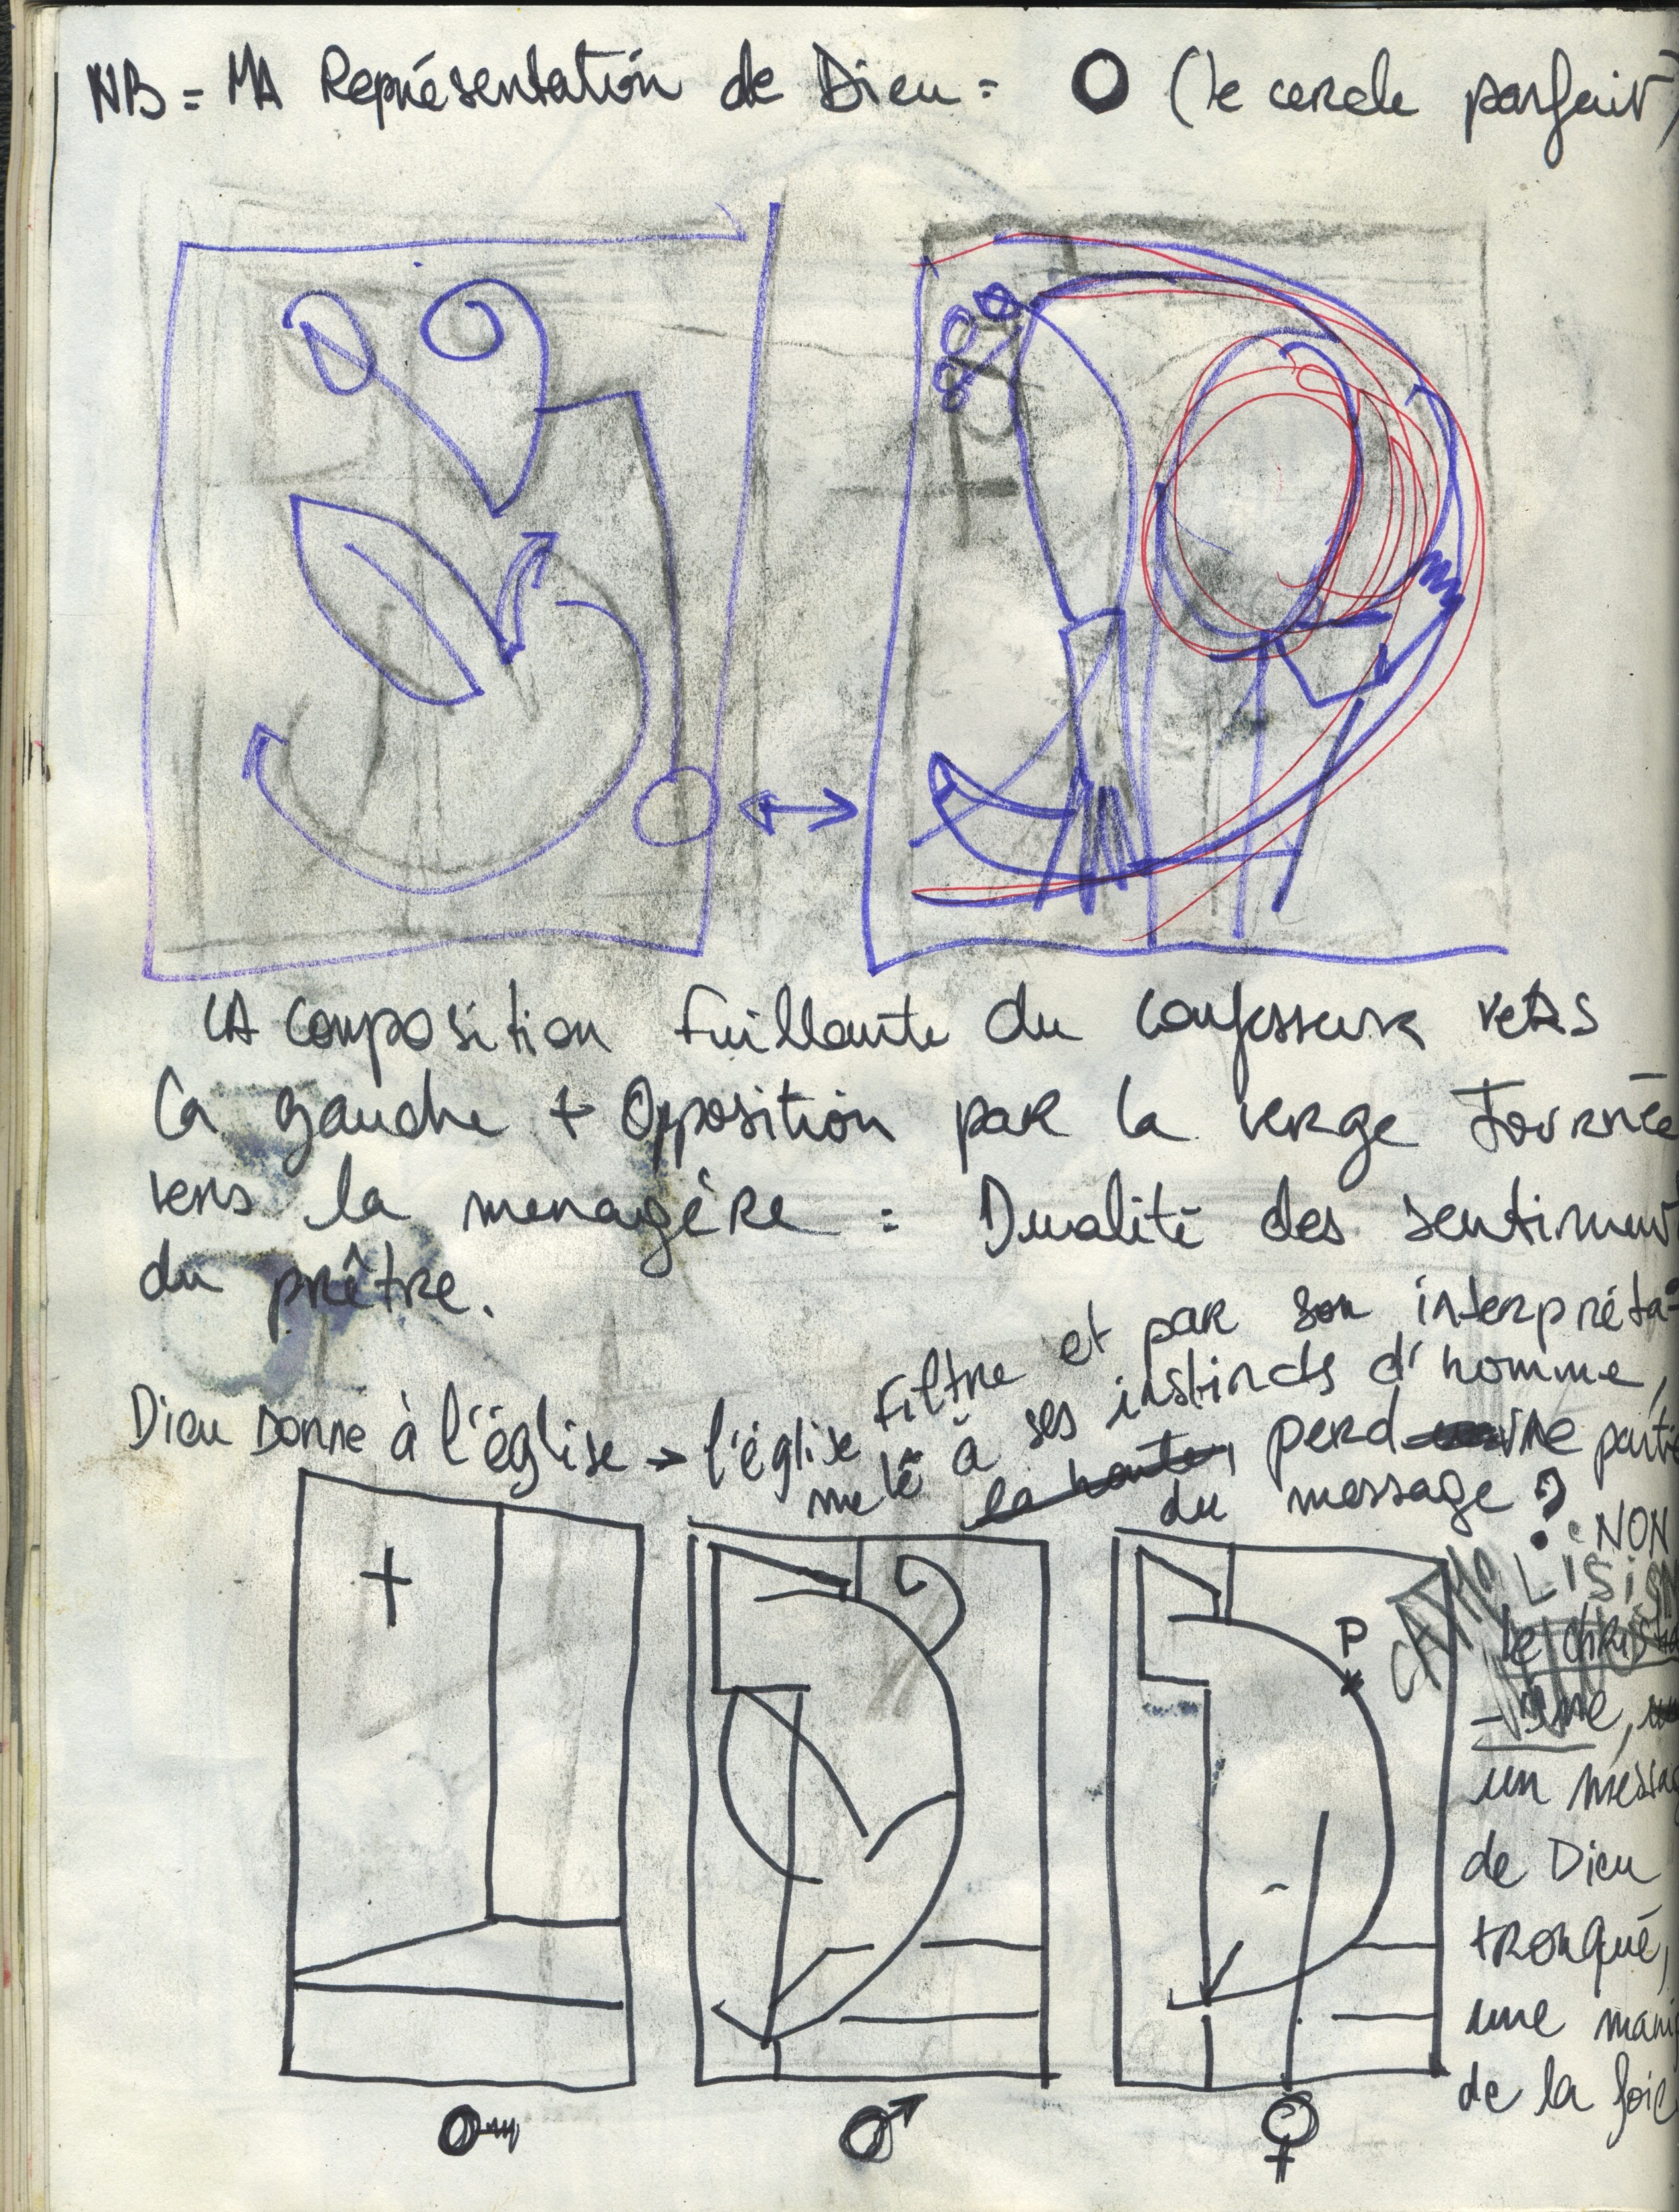 NB = MA Représentation de Dieu = O (le cercle parfait)
LA composition fuillante du confesseur vers
la gauche + Opposition par la verge Tournée
vers la menagère = Dualité des sentiment
du prêtre.
Dieu donne à l'église → l'église filtre et par son interpréta-
melé à ses instincts d'homme,
la honte, perd une partie
du message ?
: NON
CATHOLISISM
le christia
-isme,
un messag
de Dieu
tronqué,
une mani
de la foie
P